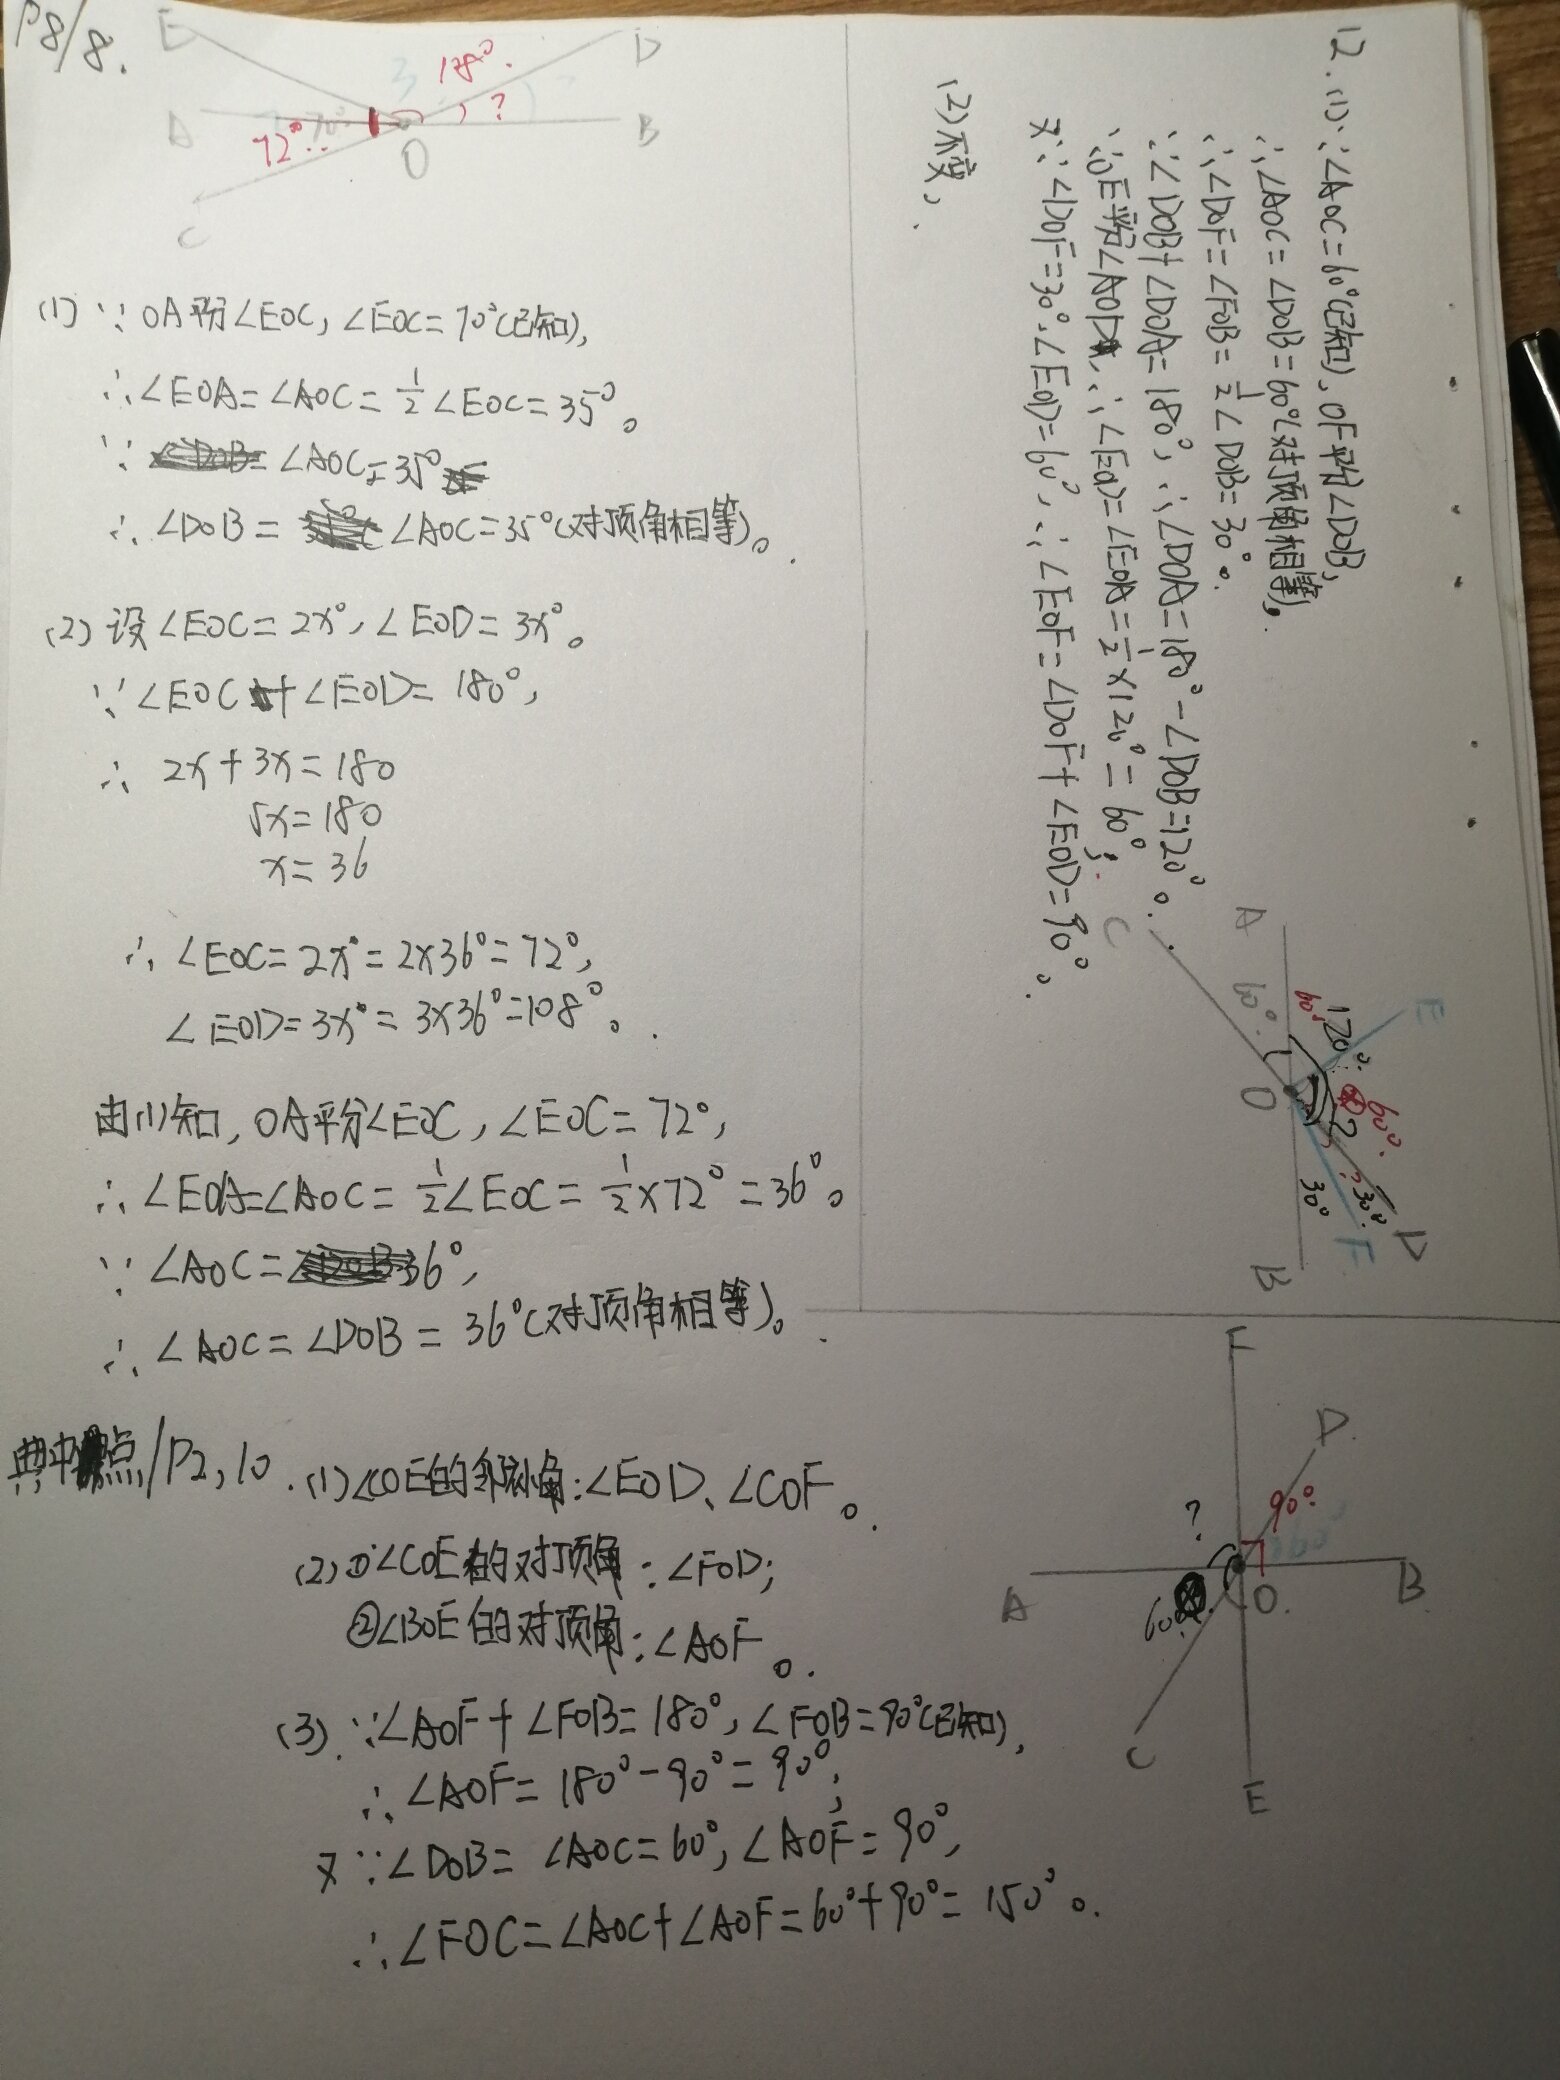 P8/8.
E
D
3
108°.
?
A
72°
70°
O
B
C
(1) ∵ OA平分∠EOC, ∠EOC=70°(已知),
∴∠EOA=∠AOC=1/2∠EOC=35°。
∵ ∠AOC=35°
∴∠DOB= ∠AOC=35°(对顶角相等)。
(2) 设∠EOC=2x°, ∠EOD=3x°。
∵∠EOC+∠EOD=180°,
∴ 2x+3x=180
5x=180
x=36
∴ ∠EOC=2x°=2×36°=72°,
∠EOD=3x°=3×36°=108°。
由(1)知, OA平分∠EOC, ∠EOC=72°,
∴∠EOA=∠AOC=1/2∠EOC=1/2×72°=36°。
∵∠AOC=36°,
∴∠AOC=∠DOB=36°(对顶角相等)。
典中点/P2,10.(1)∠COE的邻补角:∠EOD、∠COF。
(2)①∠COE的对顶角:∠FOD;
②∠BOE的对顶角:∠AOF。
(3)∵∠AOF+∠FOB=180°,∠FOB=90°(已知),
∴∠AOF=180°-90°=90°;
又∵∠DOB=∠AOC=60°,∠AOF=90°,
∴∠FOC=∠AOC+∠AOF=60°+90°=150°。
12.(1)∵∠AOC=60°(已知),OF平分∠DOB,
∴∠AOC=∠DOB=60°(对顶角相等),
∴∠DOF=∠FOB=1/2∠DOB=30°。
∵∠DOB+∠DOA=180°,∴∠DOA=180°-∠DOB=120°。
∵OE平分∠AOD,∴∠EOD=∠EOA=1/2×120°=60°;
又∵∠DOF=30°,∠EOD=60°,∴∠EOF=∠DOF+∠EOD=90°。
(2)不变,
A
C
60°
60°
120°
E
O
60°
?
30°
30°
D
F
B
F
D
?
90°
60°
A
60°
O
B
C
E